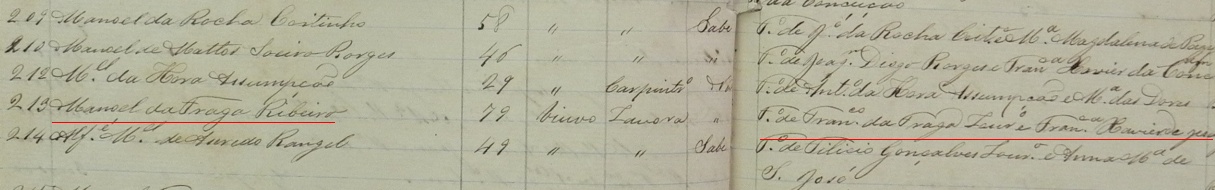 da Conceição
209 Manoel da Rocha Coitinho 58 " " Sabe F.º de J.e da Rocha Coit.º e M.ª Magdalena de
210 Manoel de Mattos Soeiro Borges 46 " " " F.º de Diogo Borges e Fran.ca Xavier da Conc
212 M.el da Hora Assumpção 29 " Carpintr.º F.º de Ant. da Hora Assumpção e M.ª das Dores
213 Manoel da Fraga Ribeiro 79 Viuvo Lavora " F.º de Fran.co da Fraga e Fran.ca Xavier de
214 Alf.e M.el de Azeredo Rangel 49 " " Sabe F.º de Filicio Gonçalves Lour.º e Anna M.ª de
S. José